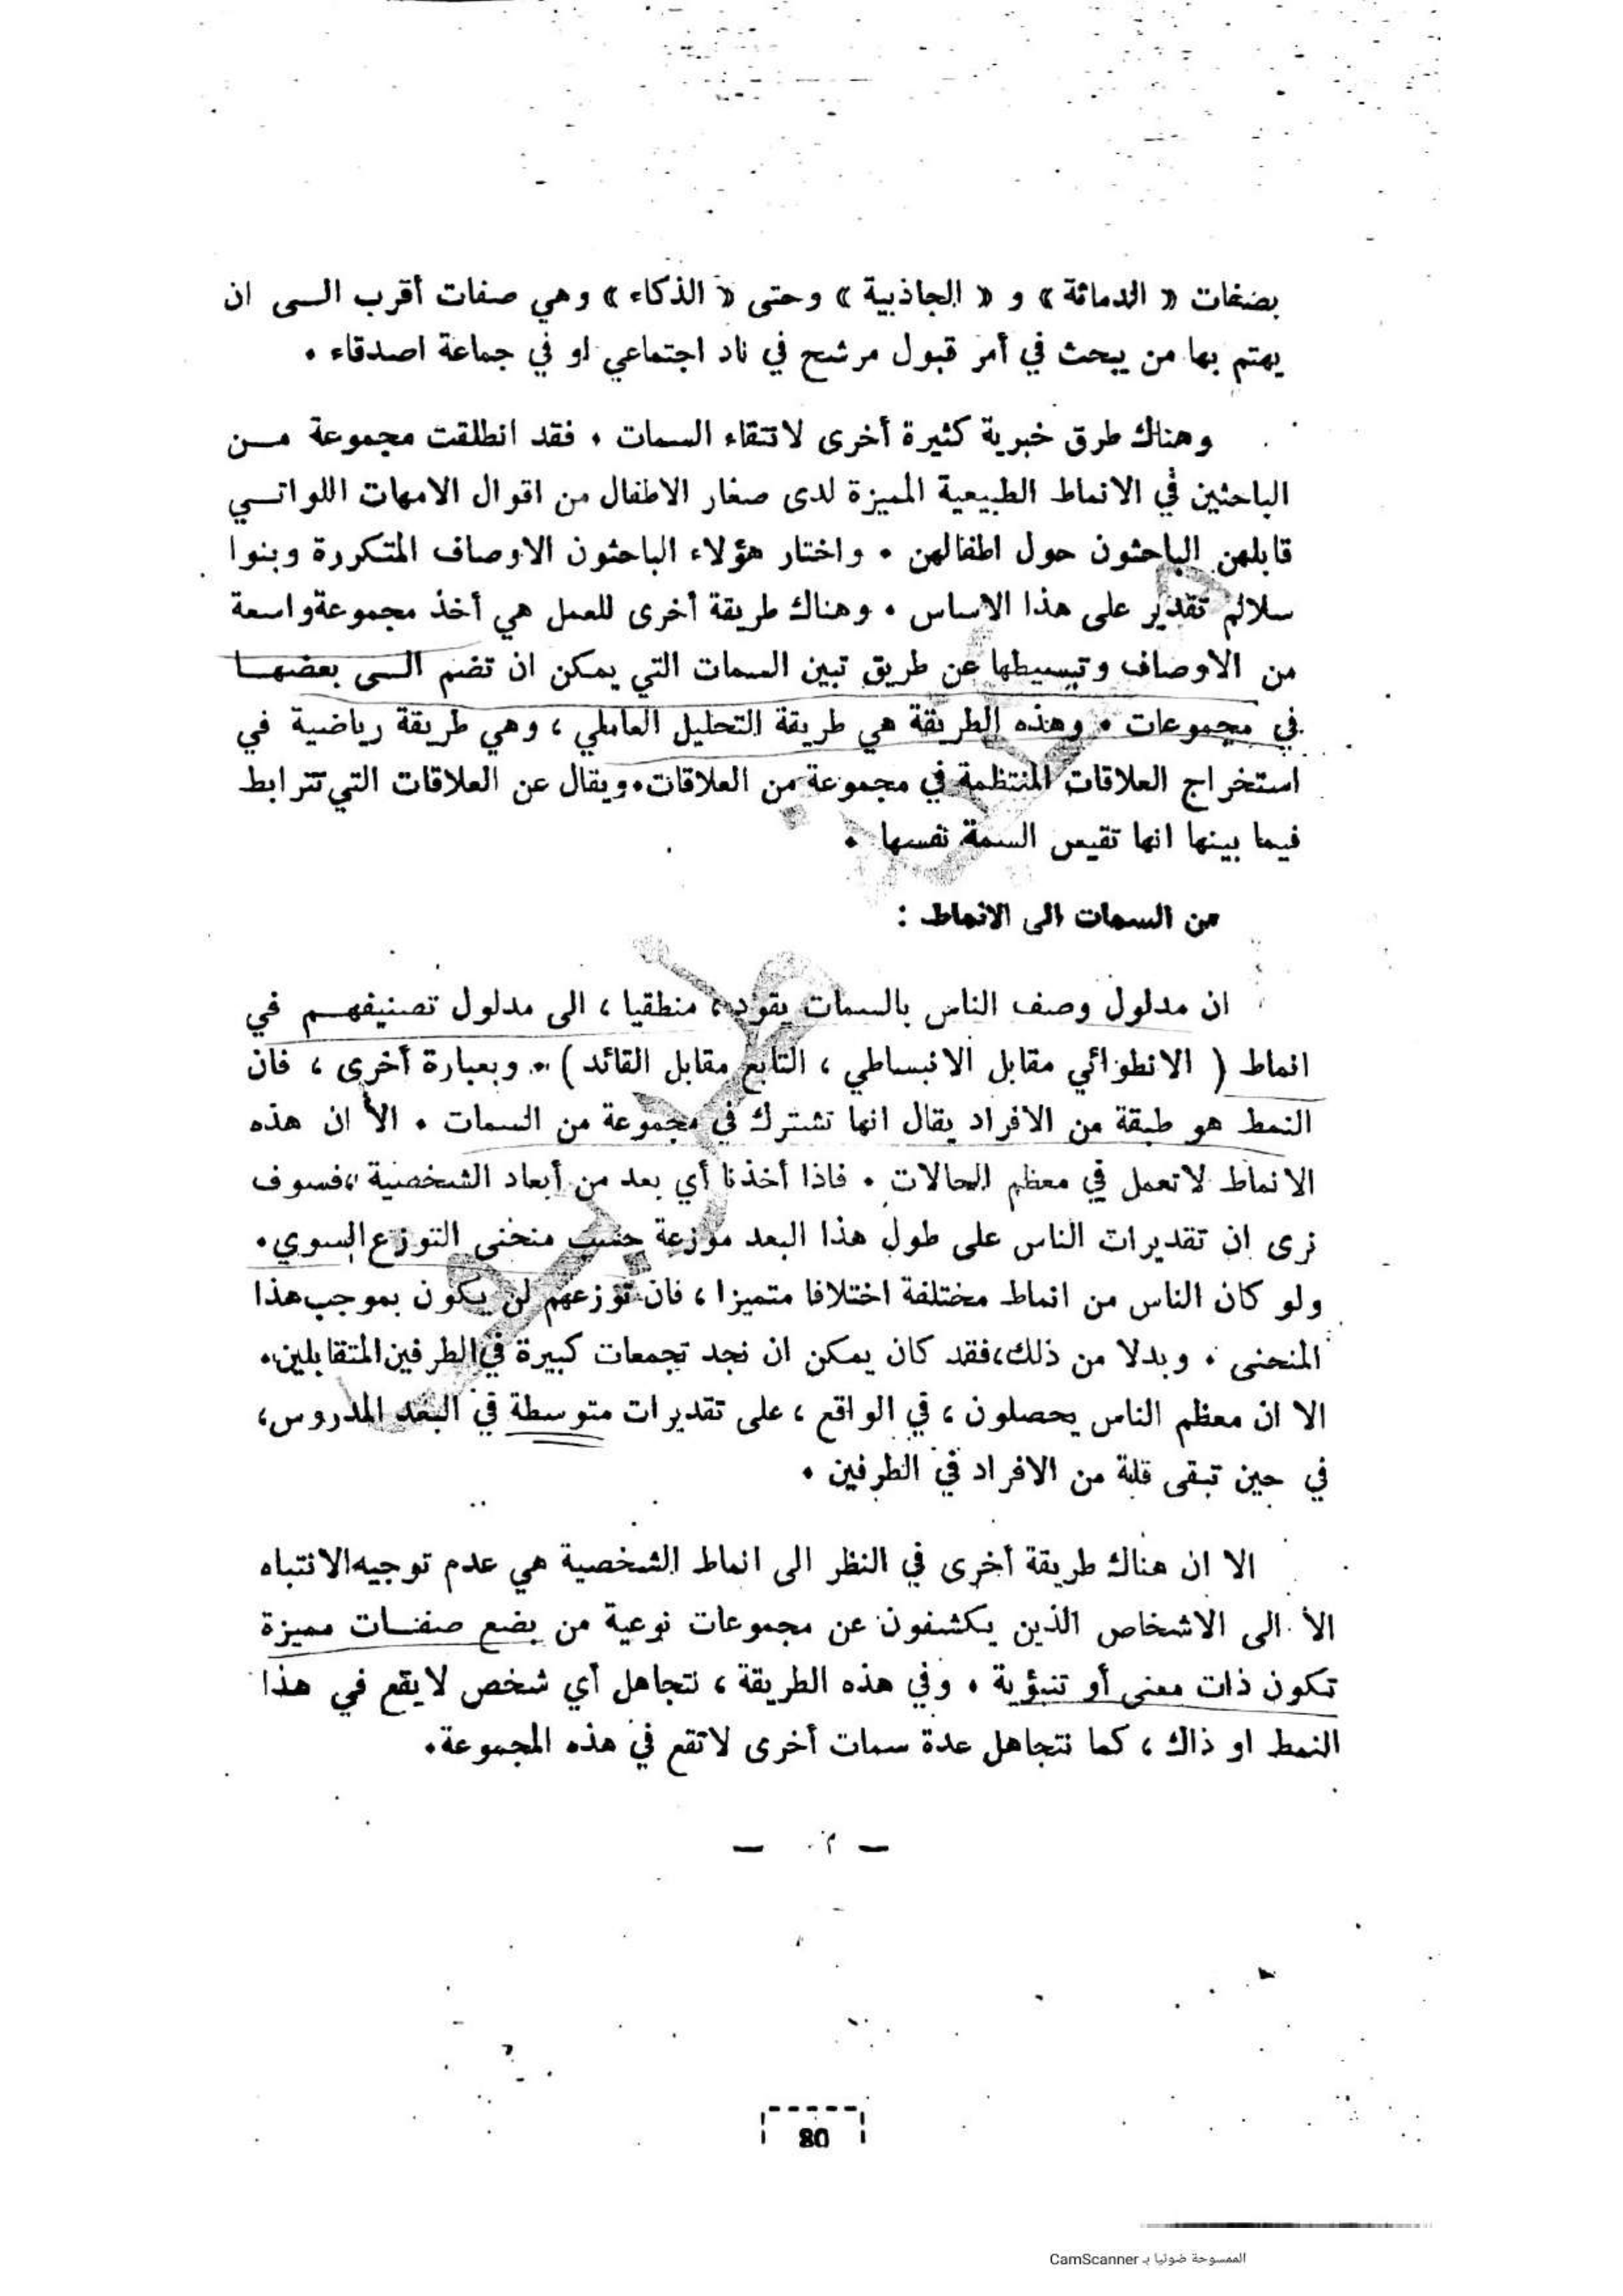 بصفات « الدماثة » و « الجاذبية » وحتى « الذكاء » وهي صفات أقرب الـى ان
يهتم بها من يبحث في أمر قبول مرشح في ناد اجتماعي او في جماعة اصدقاء .
وهناك طرق خبرية كثيرة أخرى لانتقاء السمات . فقد انطلقت مجموعة مـن
الباحثين في الانماط الطبيعية المميزة لدى صغار الاطفال من اقوال الامهات اللواتـي
قابلهن الباحثون حول اطفالهن . واختار هؤلاء الباحثون الاوصاف المتكررة وبنوا
سلالم تقدير على هذا الاساس . وهناك طريقة أخرى للعمل هي أخذ مجموعة واسعة
من الاوصاف وتبسيطها عن طريق تبين السمات التي يمكن ان تضم الـى بعضهـا
في مجموعات . وهذه الطريقة هي طريقة التحليل العاملي ، وهي طريقة رياضية في
استخراج العلاقات المنتظمة في مجموعة من العلاقات. ويقال عن العلاقات التي تترابط
فيما بينها انها تقيس السمة نفسها .
من السمات الى الانماط :
ان مدلول وصف الناس بالسمات يقود ، منطقيا ، الى مدلول تصنيفهـم في
انماط ( الانطوائي مقابل الانبساطي ، التابع مقابل القائد ) .. وبعبارة أخرى ، فان
النمط هو طبقة من الافراد يقال انها تشترك في مجموعة من السمات . الا ان هذه
الانماط لا تعمل في معظم الحالات . فاذا أخذنا أي بعد من أبعاد الشخصية ، فسوف
نرى ان تقديرات الناس على طول هذا البعد موزعة حسب منحنى التوزع السوي .
ولو كان الناس من انماط مختلفة اختلافا متميزا ، فان توزعهم لن يكون بموجب هذا
المنحنى . وبدلا من ذلك ، فقد كان يمكن ان نجد تجمعات كبيرة في الطرفين المتقابلين .
الا ان معظم الناس يحصلون ، في الواقع ، على تقديرات متوسطة في البعد المدروس ،
في حين تبقى قلة من الافراد في الطرفين .
الا ان هناك طريقة أخرى في النظر الى انماط الشخصية هي عدم توجيه الانتباه
الا الى الاشخاص الذين يكشفون عن مجموعات نوعية من بضع صفـات مميزة
تكون ذات معنى أو تنبؤية . وفي هذه الطريقة ، نتجاهل أي شخص لا يقع في هذا
النمط او ذاك ، كما نتجاهل عدة سمات أخرى لا تقع في هذه المجموعة .
80
الممسوحة ضوئيا بـ CamScanner